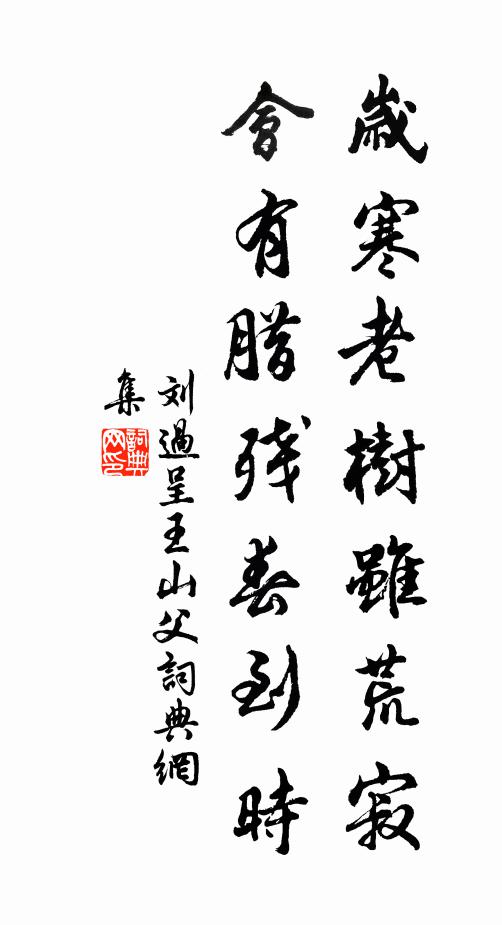 歲寒老樹雖荒寂
會有腊残春到時
刘過呈王山父詞典網
集
詞典网印